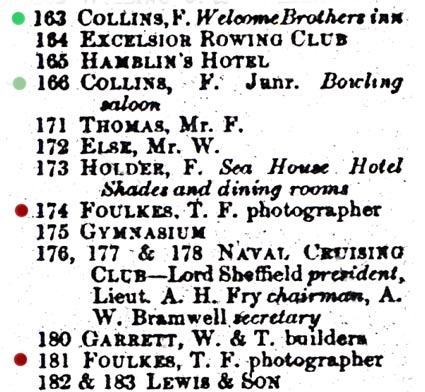 163 COLLINS, F. Welcome Brothers inn
164 EXCELSIOR ROWING CLUB
165 HAMBLIN'S HOTEL
166 COLLINS, F. Junr. Bowling
saloon
171 THOMAS, Mr. F.
172 ELSE, Mr. W.
173 HOLDER, F. Sea House Hotel
Shades and dining rooms
174 FOULKES, T. F. photographer
175 GYMNASIUM
176, 177 & 178 NAVAL CRUISING
CLUB—Lord Sheffield president,
Lieut. A. H. Fry chairman, A.
W. Bramwell secretary
180 GARRETT, W. & T. builders
181 FOULKES, T. F. photographer
182 & 183 LEWIS & SON